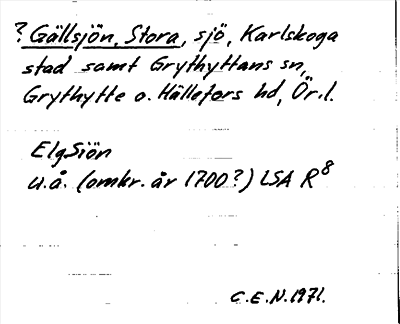 ? Gällsjön, Stora, sjö, Karlskoga
stad samt Grythyttans sn,
Grythytte o. Hällefors hd, Ör.l.
ElgSiön
u.å. (omkr. år 1700?) LSA R8
C.E.N. 1971.